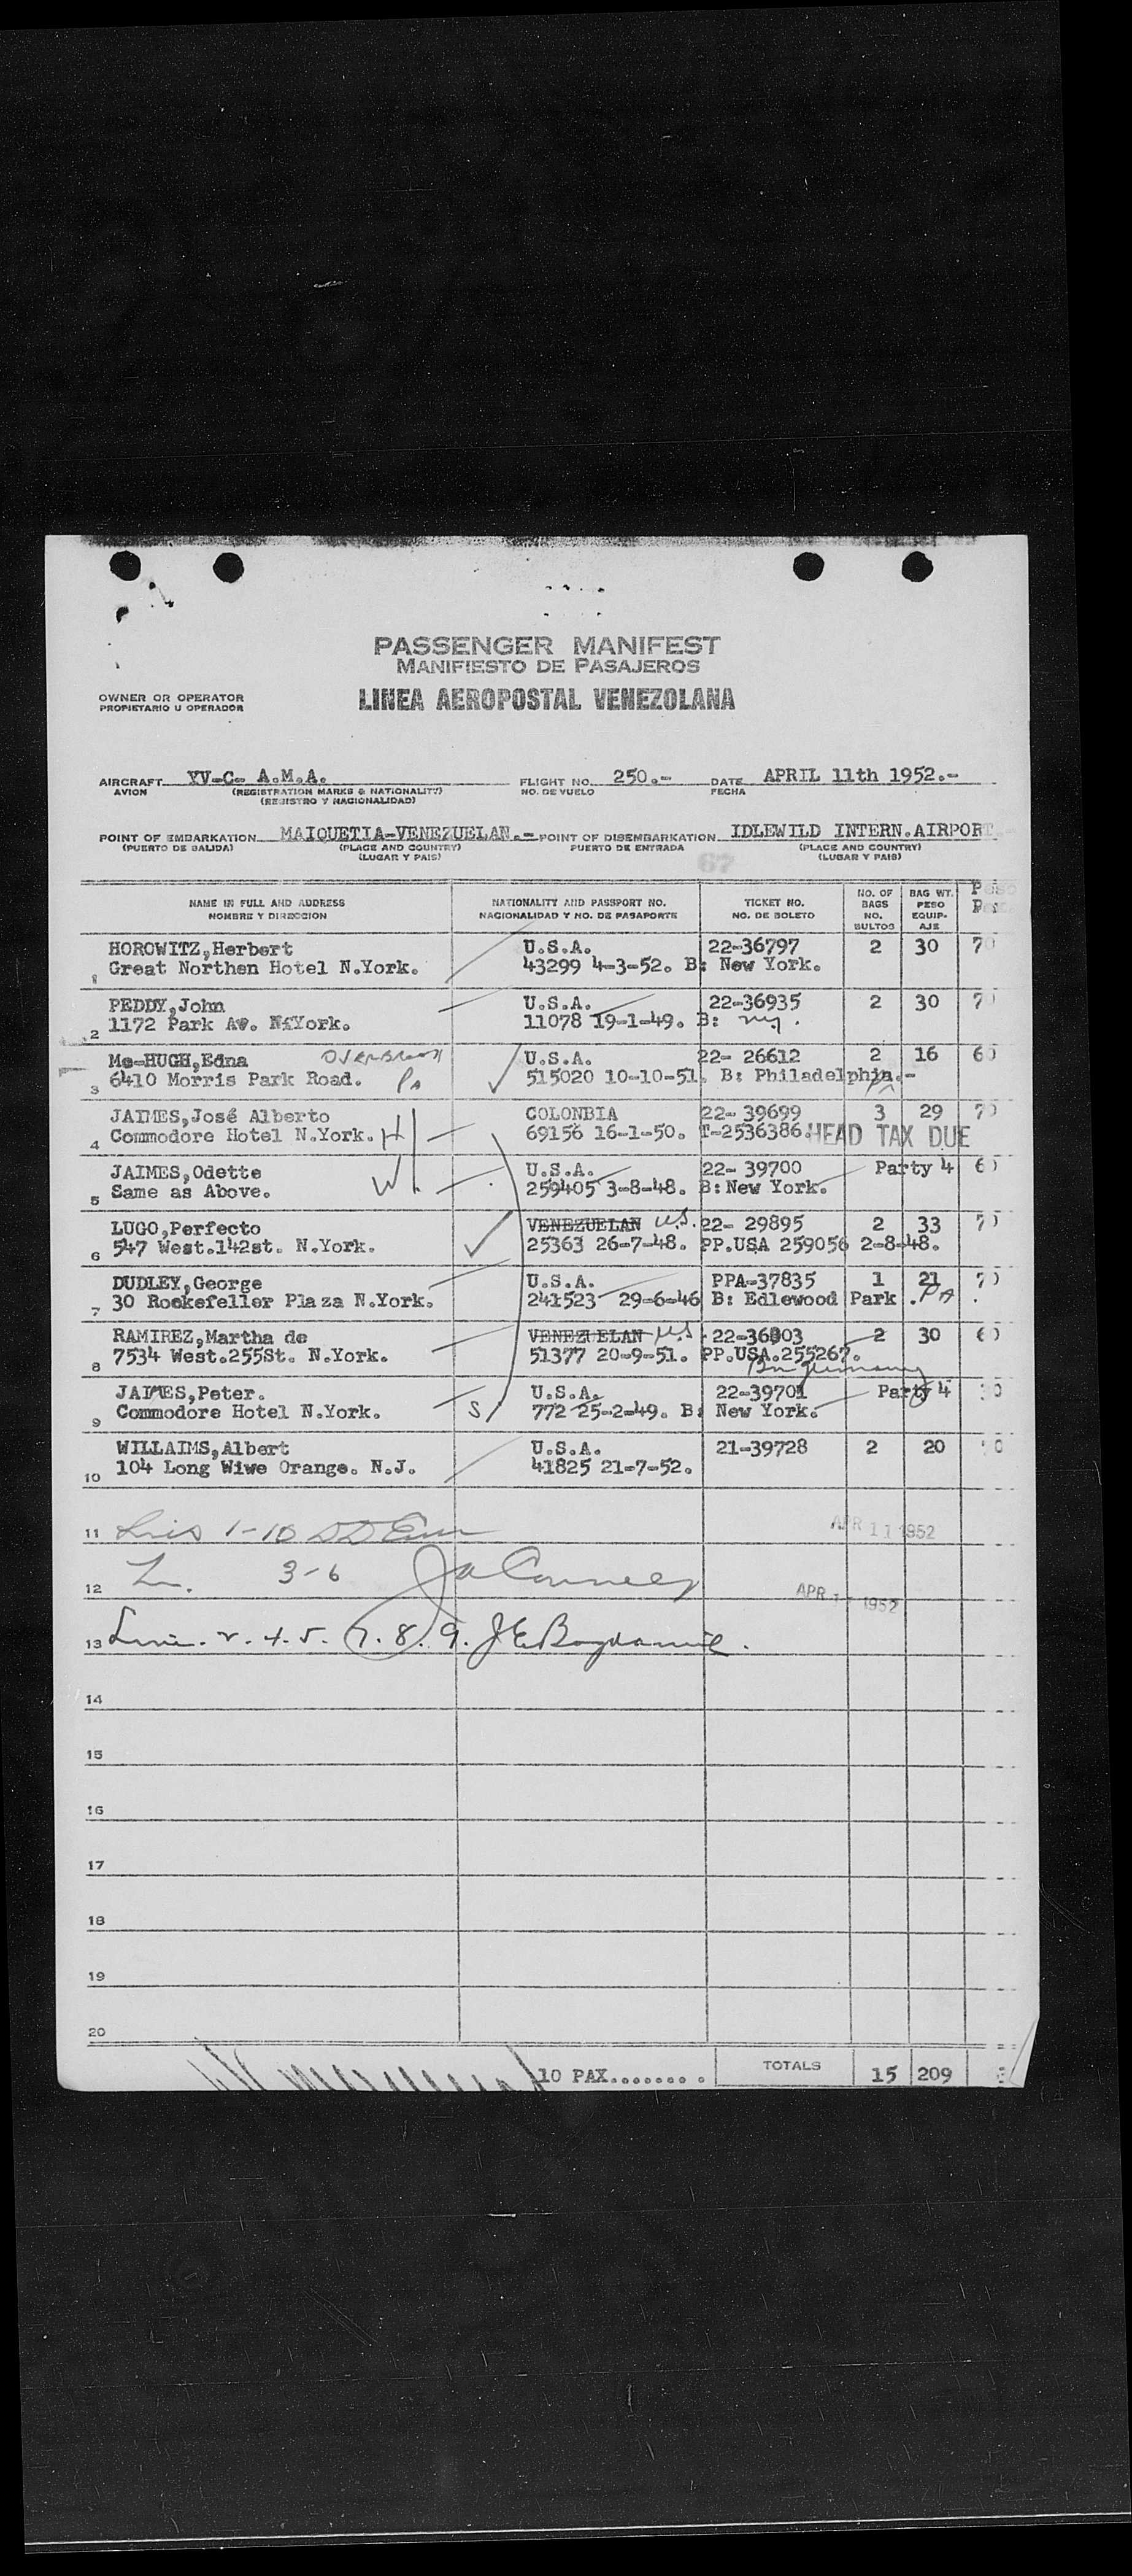 PASSENGER MANIFEST
MANIFIESTO DE PASAJEROS
OWNER OR OPERATOR
PROPIETARIO U OPERADOR
LINEA AEROPOSTAL VENEZOLANA
AIRCRAFT YV-C- A.M.A. FLIGHT NO. 250.- DATE APRIL 11th 1952.-
AVION (REGISTRATION MARKS & NATIONALITY) NO. DE VUELO FECHA
(REGISTRO Y NACIONALIDAD)
POINT OF EMBARKATION MAIQUETIA-VENEZUELAN.- POINT OF DISEMBARKATION IDLEWILD INTERN.AIRPORT.-
(PUERTO DE SALIDA) (PLACE AND COUNTRY) PUERTO DE ENTRADA (PLACE AND COUNTRY)
(LUGAR Y PAIS) 67 (LUGAR Y PAIS)
NAME IN FULL AND ADDRESS NATIONALITY AND PASSPORT NO. TICKET NO. NO. OF BAGS BAG WT. Peso
NOMBRE Y DIRECCION NACIONALIDAD Y NO. DE PASAPORTE NO. DE BOLETO NO. BULTOS PESO EQUIP-AJE
HOROWITZ,Herbert U.S.A. 22-36797 2 30 70
1 Great Northen Hotel N.York. 43299 4-3-52. B: New York.
PEDDY,John U.S.A. 22-36935 2 30 70
2 1172 Park Av. N.York. 11078 19-1-49. B: ny.
Mc-HUGH,Edna OVERBROOK U.S.A. 22- 26612 2 16 60
3 6410 Morris Park Road. Pa 515020 10-10-51. B: Philadelphia.- Pa
JAIMES,José Alberto COLONBIA 22- 39699 3 29 70
4 Commodore Hotel N.York. H 69156 16-1-50. T-2536386. HEAD TAX DUE
JAIMES,Odette U.S.A. 22- 39700 Party 4 60
5 Same as Above. W 259405 3-8-48. B:New York.
LUGO,Perfecto VENEZUELAN U.S. 22- 29895 2 33 70
6 547 West.142st. N.York. 25363 26-7-48. PP.USA 259056 2-8-48.
DUDLEY,George U.S.A. PPA-37835 1 21 70
7 30 Rockefeller Plaza N.York. 241523 29-6-46 B: Edlewood Park . PA .
RAMIREZ,Martha de VENEZUELAN U.S. 22-36803 2 30 60
8 7534 West.255St. N.York. 51377 20-9-51. PP.USA.255267.
Bn Germany
JAIMES,Peter. U.S.A. 22-39701 Party 4
9 Commodore Hotel N.York. S 772 25-2-49. B: New York.
WILLAIMS,Albert U.S.A. 21-39728 2 20
10 104 Long Wiwe Orange. N.J. 41825 21-7-52.
11 1-10 APR 11 1952
12 3-6 APR 1952
13 2. 4. 5. 7. 8. 9.
14
15
16
17
18
19
20
10 PAX........ TOTALS 15 209